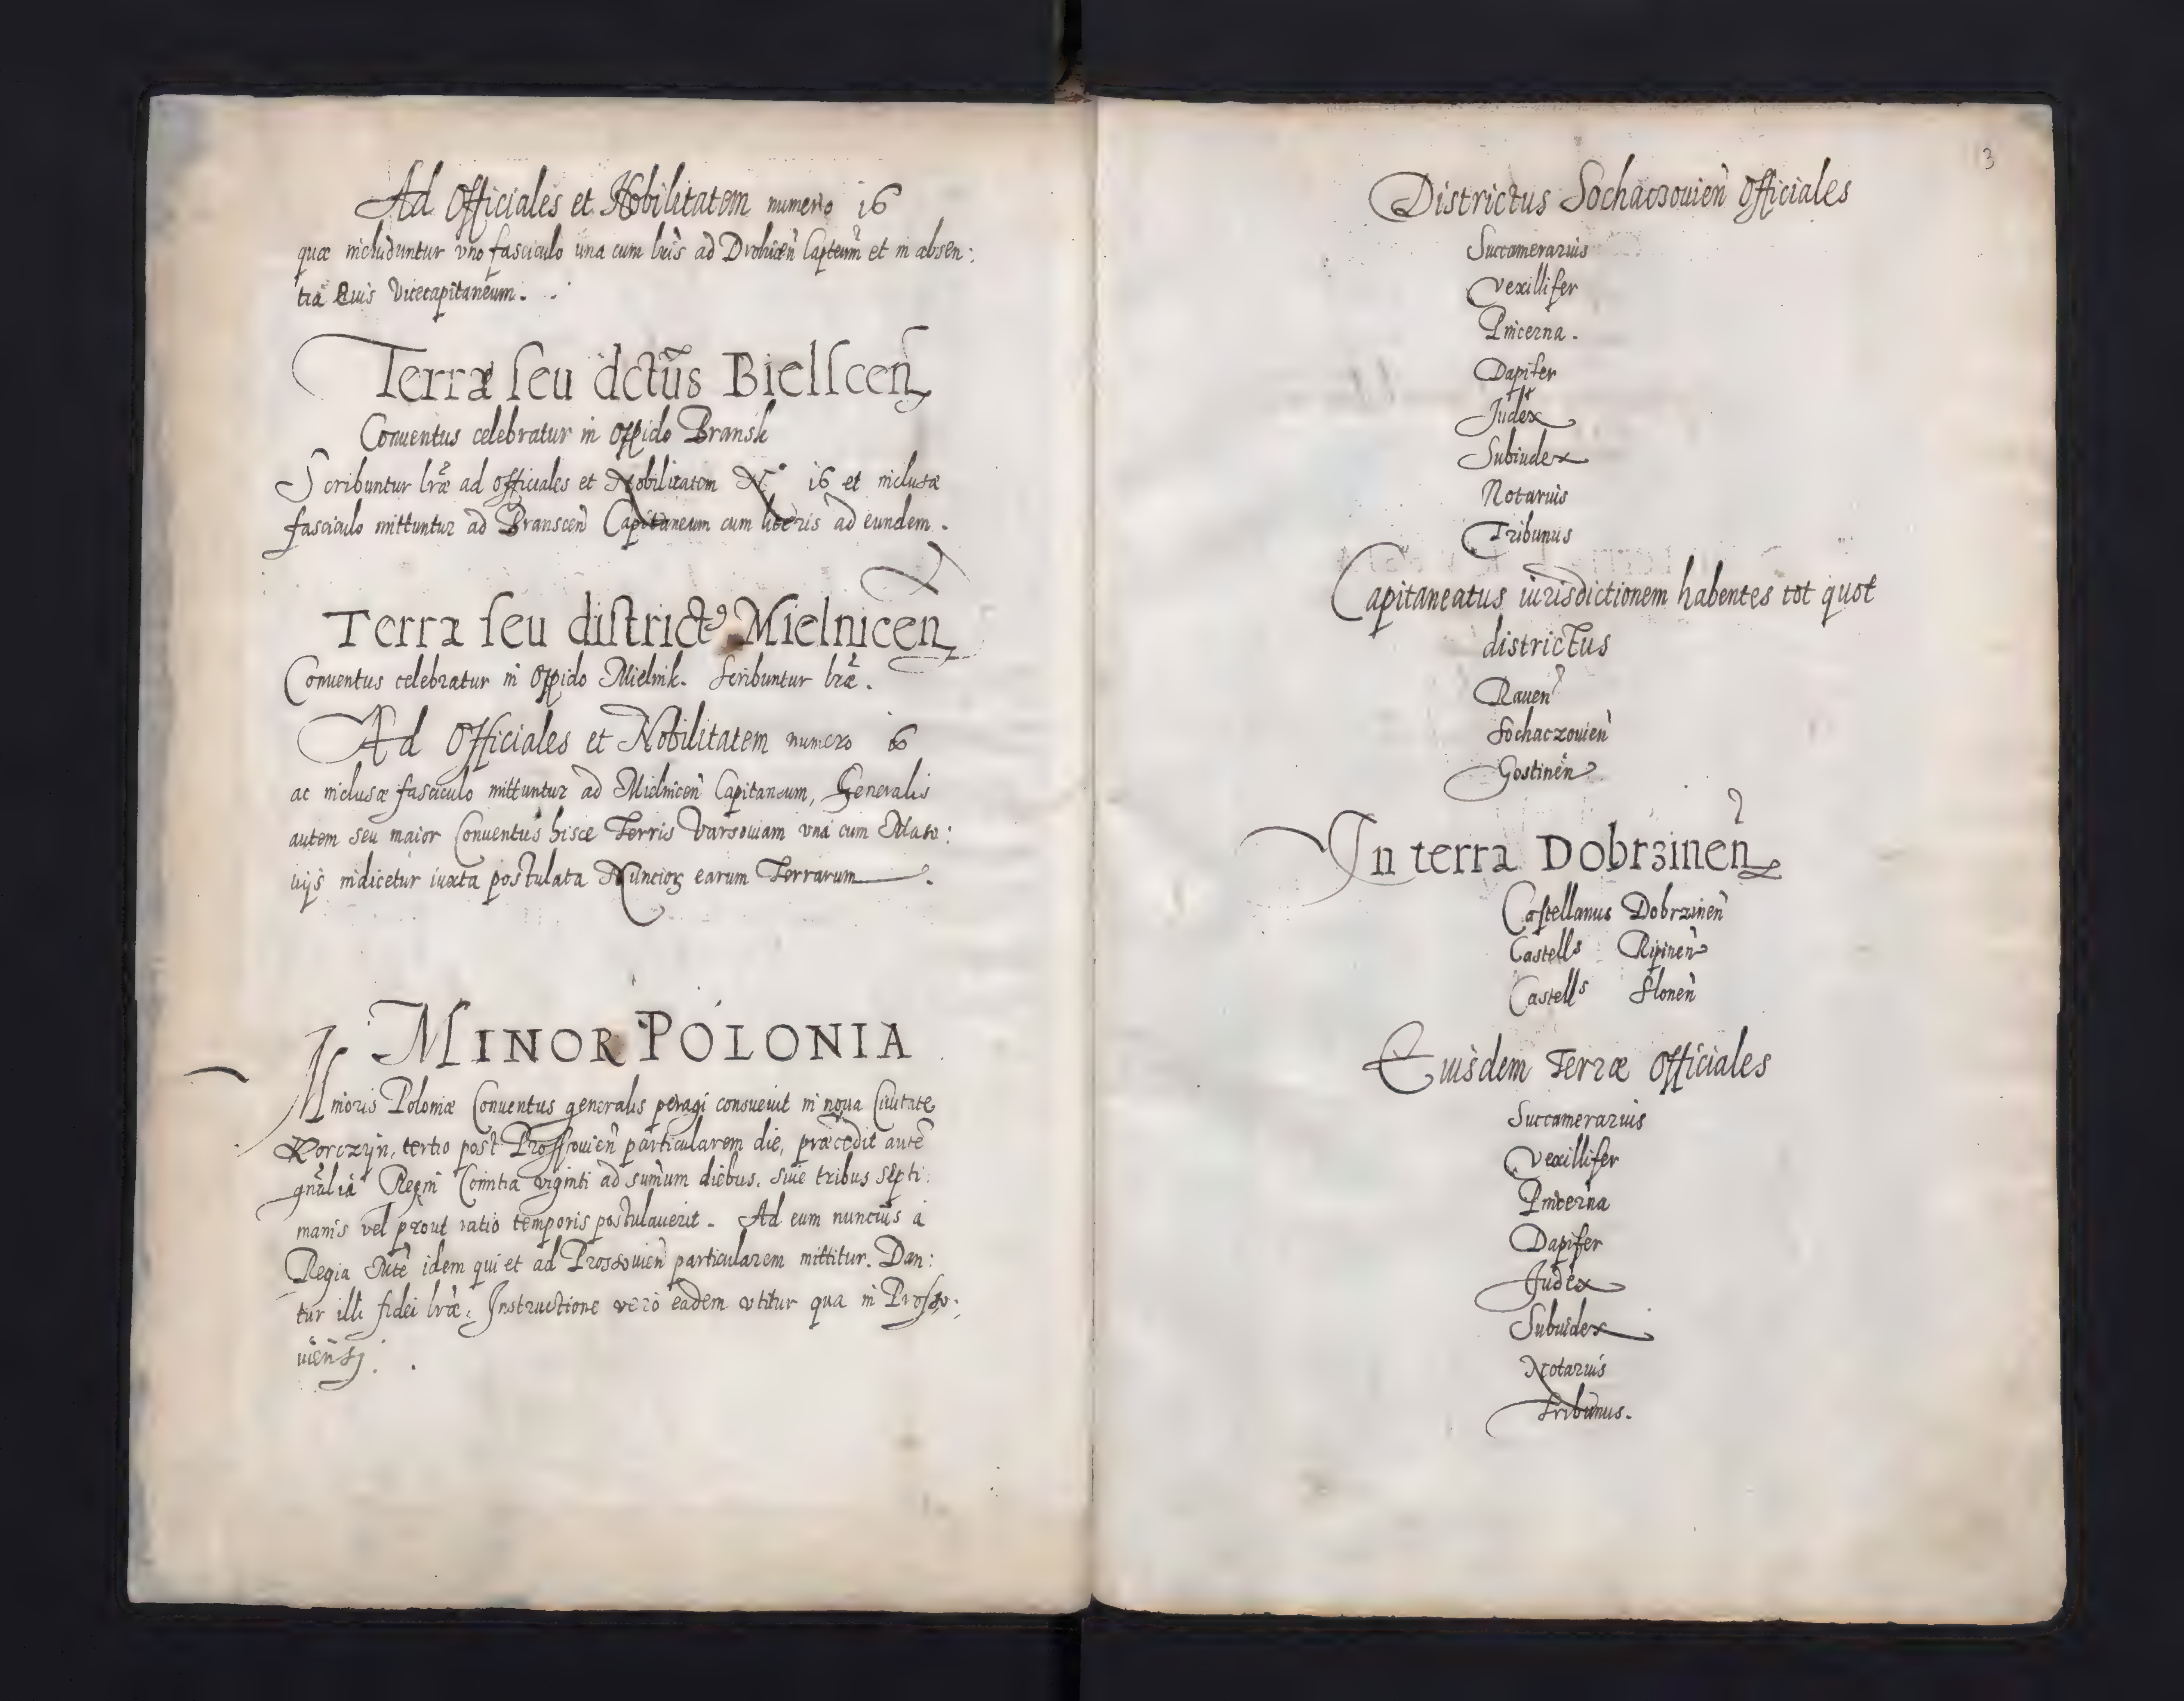 Ad Officiales et Nobilitatem numero 16
quæ includuntur vno fasciculo una cum lr̃is ad Drohicen̄ Capteum̄ et in absen:
tia Euis Vicecapitaneum.
Terræ seu dctũs Bielscen̄
Conuentus celebratur in Oppido Bransk
Scribuntur lr̃æ ad officiales et Nobilitatem N° 16 et inclusæ
fasciculo mittuntur ad Branscen̄ Capitaneum cum literis ad eundem.
Terræ seu district9 Mielnicen̄
Conuentus celebratur in Oppido Mielnik. Scribuntur lr̃æ.
Ad Officiales et Nobilitatem numero 16
ac inclusæ fasciculo mittuntur ad Mielnicen̄ Capitaneum, Generalis
autem seu maior Conuentus hisce Terris Varsouiam vna cum Maso:
uijs indicetur iuxta postulata Nuncioꝝ earum Terrarum.
MINOR POLONIA
Minoris Poloniæ Conuentus generalis peragi consueuit in noua Ciuitate
Korczyn, tertio post Prossouien̄ particularem die, præcedit autē
gn̄alia Regni Comitia viginti ad sum̄um diebus, siue tribus septi:
manis vel prout ratio temporis postulauerit. Ad eum nuncius a
Regia Mtē idem qui et ad Prossouien̄ particularem mittitur. Dan:
tur illi fidei lr̃æ: Instructione vero eadem vtitur qua in Prosso:
uien̄si.
3
Districtus Sochaczouien̄ Officiales
Succamerarius
Vexillifer
Pincerna.
Dapifer
Judex
Subiudex
Notarius
Tribunus
Capitaneatus iurisdictionem habentes tot quot
districtus
Rauen̄
Sochaczouien̄
Gostinen̄
In terra Dobrzinen̄
Castellanus Dobrzinen̄
Castells Ripinen̄
Castells Slonen̄
Eiusdem Terræ Officiales
Succamerarius
Vexillifer
Pincerna
Dapifer
Judex
Subiudex
Notarius
Tribunus.